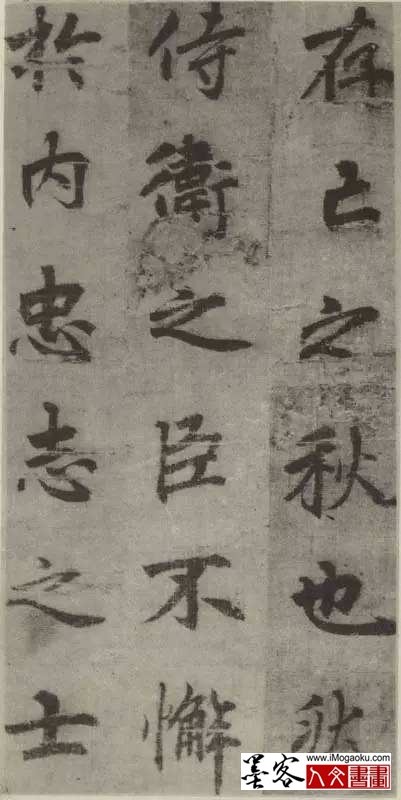 存亡之秋也然
侍衛之臣不懈
於内忠志之士
www.iMogaoku.com
墨客
人文書畫